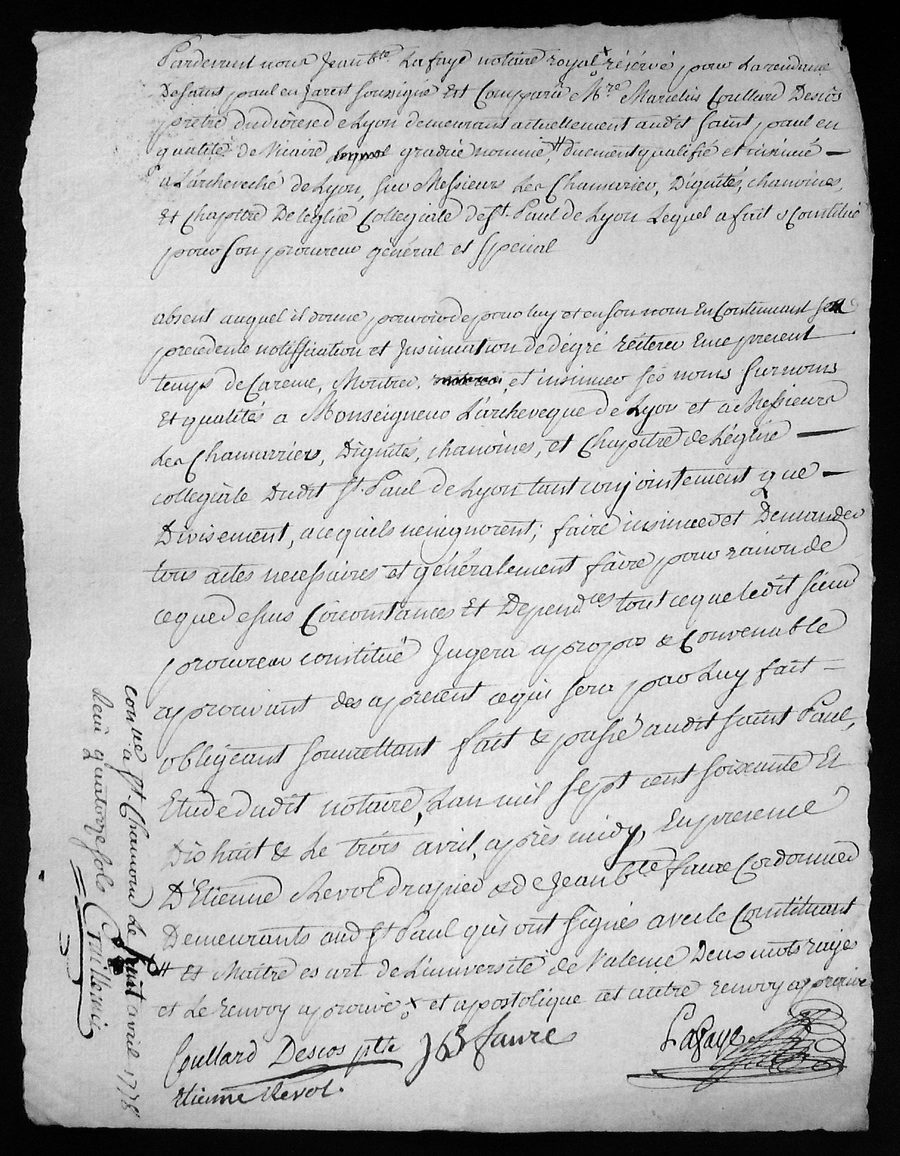 Pardevant nous Jean bte. Lafaye notaire royal x réservé pour La residance
De Saint paul en Jarest soussigné Est Comparu Mre. Marcelin Coullard Descos
prêtre du diocese de Lyon demeurant actuellement audit Saint paul en
qualité de Vicaire gradué nommé, # duement qualifié et insinué —
a L'archeveché de Lyon, sur Messieurs Les Chamarier, Dignités, chanoines,
Et Chapitre De l'eglise Collegiale de St. Paul de Lyon Lequel a fait & Constitué
pour Son procureur général et Special
absent auquel il donne pouvoir de pour luy et en son nom En Continuant Sa
precedente notiffication et Insinuation de degré Réiterer En ce present
temps de Careme, Montrer, et insinuer ses noms surnoms
Et qualités a Monseigneur L'archeveque de Lyon et a Messieurs
Les Chamarriers, Dignités, chanoines, et Chapitre de L'église —
collegiale Dudit St. Paul de Lyon tant conjointement que —
Divisement, a ce qu'ils n'en ignorent; faire insinuer et Demander
tous actes necessaires et généralement faire pour raison de
ce que dessus Circonstances Et Dependces tout ce que ledit sieur
procureur constitué Jugera apropos & Convenable
approuvant des apresent ce qui sera par Luy fait =
obligeant soumettant fait & passé audit Saint Paul,
Etude dudit notaire, L'an mil sept cent soixante Et
Dix huit & Le trois avril, après midy, En presence
D'Etienne Revol drapier & de Jean bte faure Cordonnier
Demeurants aud. St. Paul qui ont signés avec le Constituant
# Et Maître es art de L'université de Valence Deux mots rayés
et Le renvoy approuvé x et apostolique cet autre renvoy approuvé
Coullard Descos ptre JB faure Lafaye
Etienne Revol.
con ué a St. Chamond Le huit avril 1778
Reçu quatorze sols